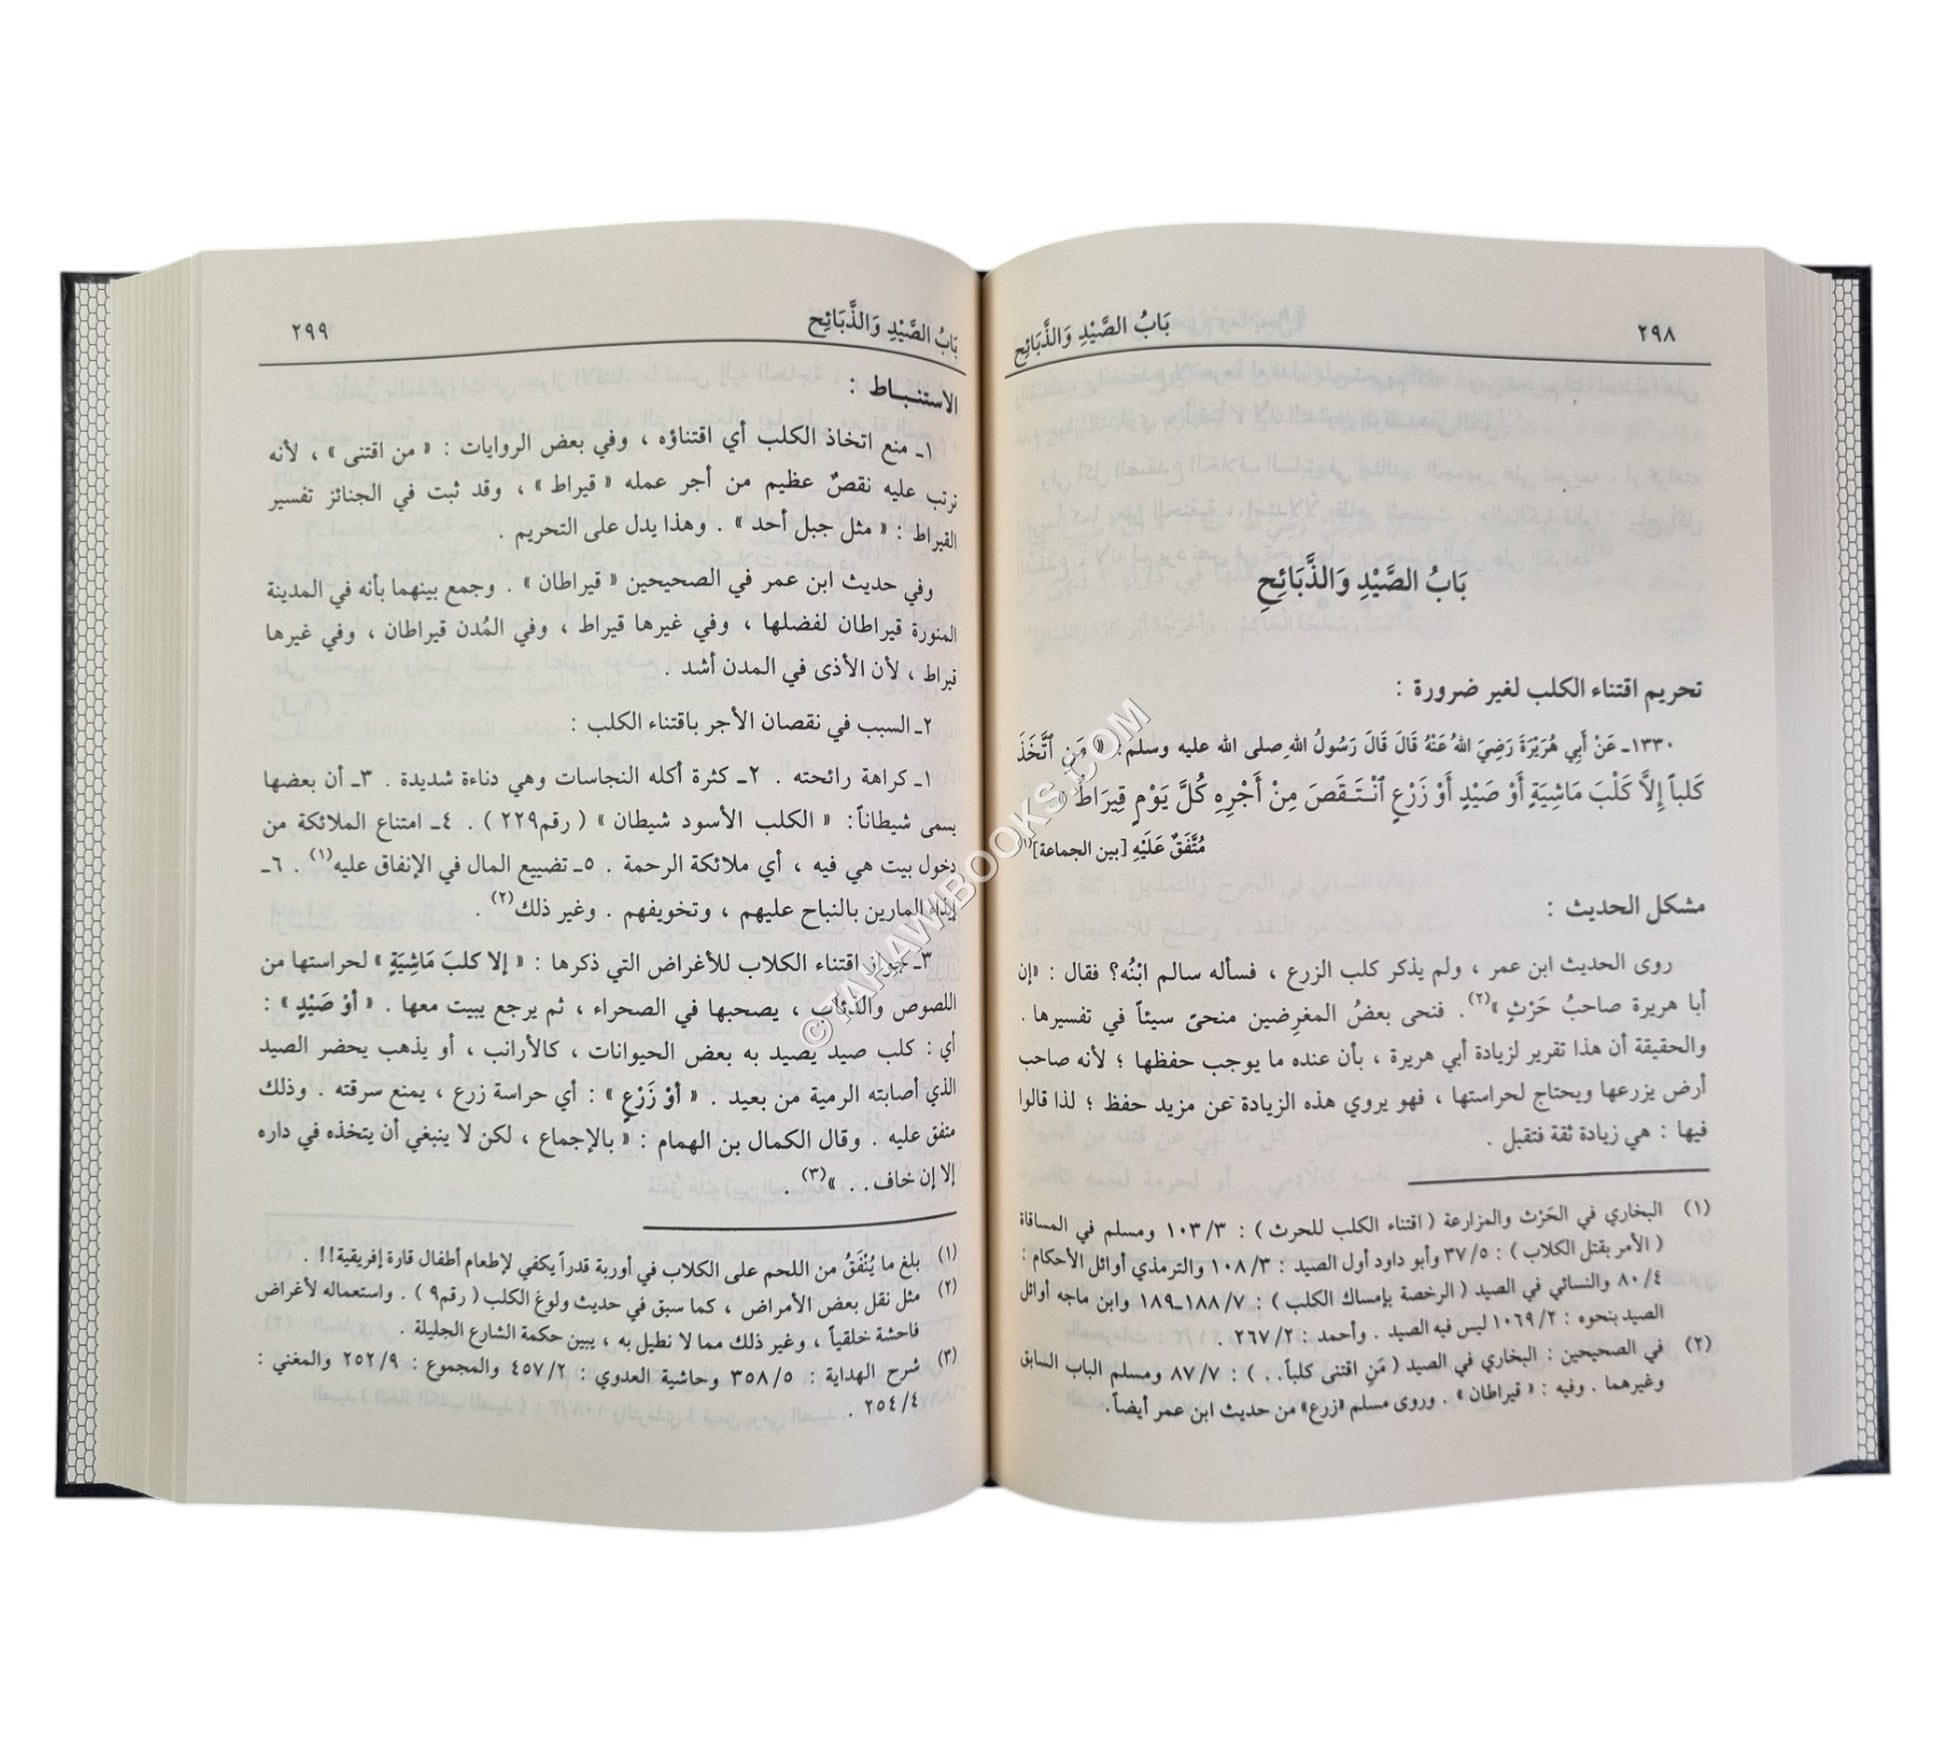 ٢٩٨
بَابُ الصَّيْدِ وَالذَّبَائِحِ
بَابُ الصَّيْدِ وَالذَّبَائِحِ
تحريم اقتناء الكلب لغير ضرورة :
١٣٣٠ـ عَنْ أَبِي هُرَيْرَةَ رَضِيَ اللهُ عَنْهُ قَالَ قَالَ رَسُولُ اللهِ صلى الله عليه وسلم: « مَنِ ٱتَّخَذَ
كَلباً إِلاَّ كَلْبَ مَاشِيَةٍ أَوْ صَيْدٍ أَوْ زَرْعٍ ٱنْتَـقَصَ مِنْ أَجْرِهِ كُلَّ يَوْمٍ قِيرَاطٌ »
مُتَّفَقٌ عَلَيْهِ [بين الجماعة](١)
مشكل الحديث :
روى الحديث ابن عمر ، ولم يذكر كلب الزرع ، فسأله سالم ابْنُه؟ فقال : «إن
أبا هريرة صاحبُ حَرْثٍ »(٢). فنحى بعضُ المغرِضين منحىً سيئاً في تفسيرها .
والحقيقة أن هذا تقرير لزيادة أبي هريرة ، بأن عنده ما يوجب حفظها ؛ لأنه صاحب
أرض يزرعها ويحتاج لحراستها ، فهو يروي هذه الزيادة عن مزيد حفظ ؛ لذا قالوا
فيها : هي زيادة ثقة فتقبل .
(١) البخاري في الحَرْث والمزارعة ( اقتناء الكلب للحرث ) : ١٠٣/٣ ومسلم في المساقاة
( الأمر بقتل الكلاب ) : ٣٧/٥ وأبو داود أول الصيد : ١٠٨/٣ والترمذي أوائل الأحكام :
٨٠/٤ والنسائي في الصيد ( الرخصة بإمساك الكلب ) : ١٨٨/٧ـ١٨٩ وابن ماجه أوائل
الصيد بنحوه : ١٠٦٩/٢ ليس فيه الصيد . وأحمد : ٢٦٧/٢ .
(٢) في الصحيحين : البخاري في الصيد ( مَنِ اقتنى كلباً. . ) : ٨٧/٧ ومسلم الباب السابق
وغيرهما . وفيه : « قيراطان » . وروى مسلم «زرع» من حديث ابن عمر أيضاً .
بَابُ الصَّيْدِ وَالذَّبَائِحِ
٢٩٩
الاستنبـاط :
١ـ منع اتخاذ الكلب أي اقتناؤه ، وفي بعض الروايات : « من اقتنى » ، لأنه
ترتب عليه نقصٌ عظيم من أجر عمله « قيراط » ، وقد ثبت في الجنائز تفسير
القيراط : « مثل جبل أحد » . وهذا يدل على التحريم .
وفي حديث ابن عمر في الصحيحين « قيراطان » . وجمع بينهما بأنه في المدينة
المنورة قيراطان لفضلها ، وفي غيرها قيراط ، وفي المُدن قيراطان ، وفي غيرها
قيراط ، لأن الأذى في المدن أشد .
٢ـ السبب في نقصان الأجر باقتناء الكلب :
١ـ كراهة رائحته . ٢ـ كثرة أكله النجاسات وهي دناءة شديدة . ٣ـ أن بعضها
يسمى شيطاناً: « الكلب الأسود شيطان » ( رقم٢٢٩ ) . ٤ـ امتناع الملائكة من
دخول بيت هي فيه ، أي ملائكة الرحمة . ٥ـ تضييع المال في الإنفاق عليه(١) . ٦ـ
إيذاء المارين بالنباح عليهم ، وتخويفهم . وغير ذلك(٢) .
٣ـ جواز اقتناء الكلاب للأغراض التي ذكرها : « إلا كلبَ مَاشِيَةٍ » لحراستها من
اللصوص والذئاب ، يصحبها في الصحراء ، ثم يرجع يبيت معها . « أوْ صَيْدٍ » :
أي : كلب صيد يصيد به بعض الحيوانات ، كالأرانب ، أو يذهب يحضر الصيد
الذي أصابته الرمية من بعيد . « أوْ زَرْعٍ » : أي حراسة زرع ، يمنع سرقته . وذلك
متفق عليه . وقال الكمال بن الهمام : « بالإجماع ، لكن لا ينبغي أن يتخذه في داره
إلا إن خاف. . »(٣) .
(١) بلغ ما يُنْفَقُ من اللحم على الكلاب في أوربة قدراً يكفي لإطعام أطفال قارة إفريقية!! .
(٢) مثل نقل بعض الأمراض ، كما سبق في حديث ولوغ الكلب ( رقم٩ ) . واستعماله لأغراض
فاحشة خلقياً ، وغير ذلك مما لا نطيل به ، يبين حكمة الشارع الجليلة .
(٣) شرح الهداية : ٣٥٨/٥ وحاشية العدوي : ٤٥٧/٢ والمجموع : ٢٥٢/٩ والمغني :
٢٥٤/٤ .
©TAHAWIBOOKS.COM